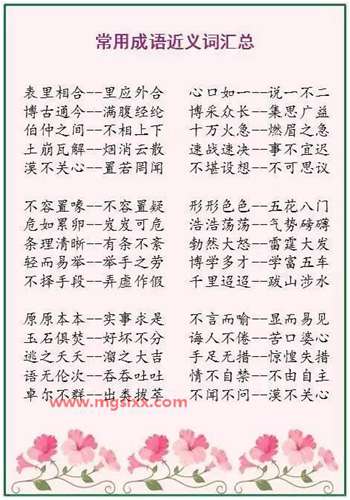 常用成语近义词汇总
表里相合--里应外合 心口如一--说一不二
博古通今--满腹经纶 博采众长--集思广益
伯仲之间--不相上下 十万火急--燃眉之急
土崩瓦解--烟消云散 速战速决--事不宜迟
漠不关心--置若罔闻 不堪设想--不可思议
不容置喙--不容置疑 形形色色--五花八门
危如累卵--岌岌可危 浩浩荡荡--气势磅礴
条理清晰--有条不紊 勃然大怒--雷霆大发
轻而易举--举手之劳 博学多才--学富五车
不择手段--弄虚作假 千里迢迢--跋山涉水
原原本本--实事求是 不言而喻--显而易见
玉石俱焚--好坏不分 诲人不倦--苦口婆心
逃之夭夭--溜之大吉 手足无措--惊惶失措
语无伦次--吞吞吐吐 情不自禁--不由自主
卓尔不群--出类拔萃 不闻不问--漠不关心
www.mgslxx.com